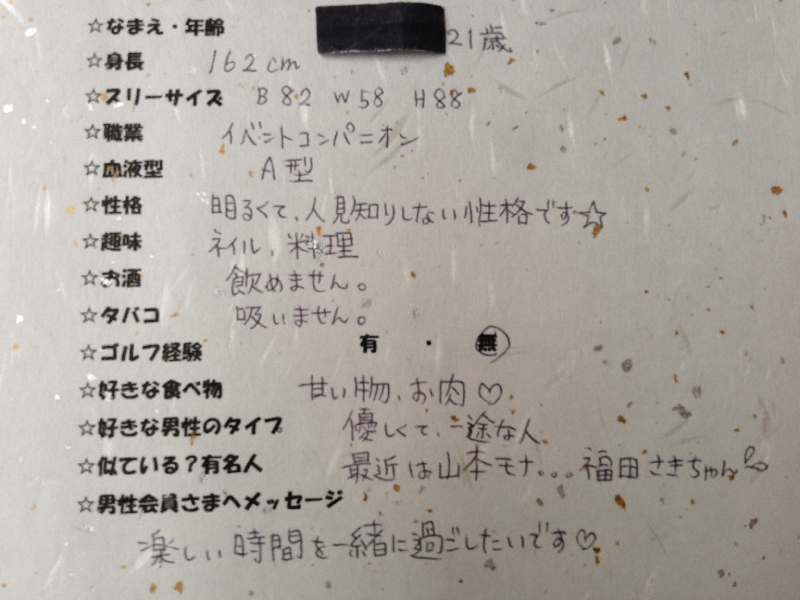 ☆なまえ・年齢 21歳
☆身長 162cm
☆スリーサイズ B82 W58 H88
☆職業 イベントコンパニオン
☆血液型 A型
☆性格 明るくて、人見知りしない性格です☆
☆趣味 ネイル、料理
☆お酒 飲めません。
☆タバコ 吸いません。
☆ゴルフ経験 有 ・ 無
☆好きな食べ物 甘い物、お肉♡
☆好きな男性のタイプ 優しくて、一途な人
☆似ている?有名人 最近は山本モナ...福田さきちゃん
☆男性会員さまへメッセージ
楽しい時間を一緒に過ごしたいです♡